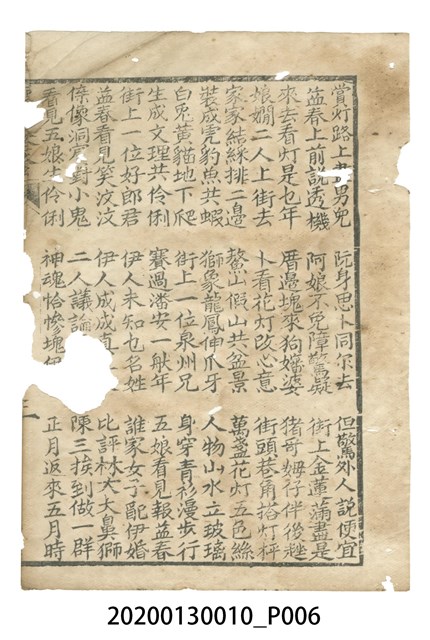 賞灯路上 男兒 阮身思卜同尔去 但驚外人說便宜
益春上前說透機 阿娘不免障驚疑 街上金蓮滿盡是
來去看灯是乜年 厝邊塊來狗嬸婆 猪哥姆仔伴後趖
娘嫺二人上街去 卜看花灯改心意 街頭巷角搭灯枰
家家結綵排二邊 鰲山假山共盆景 萬盞花灯五色絲
裝成虎豹魚共蝦 獅象龍鳳伸爪牙 人物山水立玻璃
白兎黃貓地下爬 街上一位泉州兄 身穿青衫漫步行
生成文理共伶俐 賽過潘安一般年 五娘看見報益春
街上一位好郎君 伊人未知乜名姓 誰家女子配伊婚
益春看見笑汶汶 伊人成成真 比評林大大鼻獅
像洞賓對小鬼 二人議論 陳三挨到做一群
看見五娘生伶俐 神魂恰慘塊 正月返來五月時
20200130010_P006